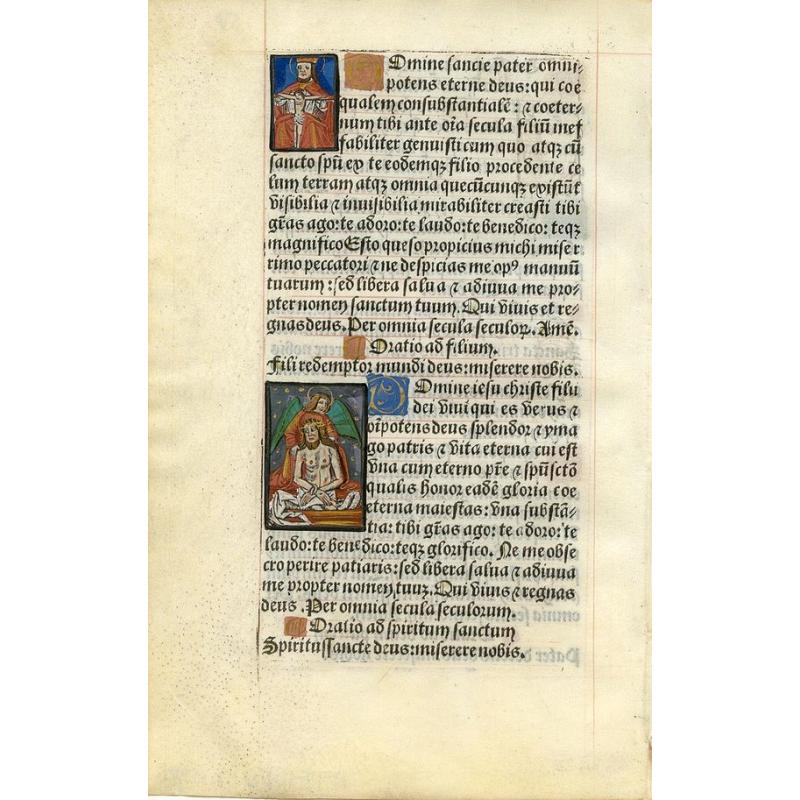 Omine sancte pater omni⸗
potens eterne deus: qui coe
qualem consubstantialē: ⁊ coeter⸗
num tibi ante oīa secula filiū inef
fabiliter genuisti cum quo atqꝫ cū
sancto spū ex te eodemqꝫ filio procedente ce
lum terram atqꝫ omnia quecūcunqꝫ existūt
visibilia ⁊ inuisibilia mirabiliter creasti tibi
grās ago: te adoro: te laudo: te benedico: teqꝫ
magnifico Esto queso propicius michi miser
rimo peccatori ⁊ ne despicias me opꝰ manuū
tuarum: sed libera salua ⁊ adiuua me pro⸗
pter nomen sanctum tuum. Qui viuis et re⸗
gnas deus. Per omnia secula seculoꝝ. Amē.
Oratio ad filium.
Fili redemptor mundi deus: miserere nobis.
Domine iesu christe filii
dei viui qui es verus ⁊
oīpotens deus splendor ⁊ yma
go patris ⁊ vita eterna cui est
vna cum eterno prē ⁊ spū sctō
qualis honor eadē gloria coe
eterna maiestas: vna substā⸗
tia: tibi grās ago: te adoro: te
laudo: te benedico: teqꝫ glorifico. Ne me obse
cro perire patiaris: sed libera salua ⁊ adiuua
me propter nomen tuuꝫ. Qui viuis ⁊ regnas
deus. Per omnia secula seculorum.
Oratio ad spiritum sanctum
Spiritus sancte deus: miserere nobis.